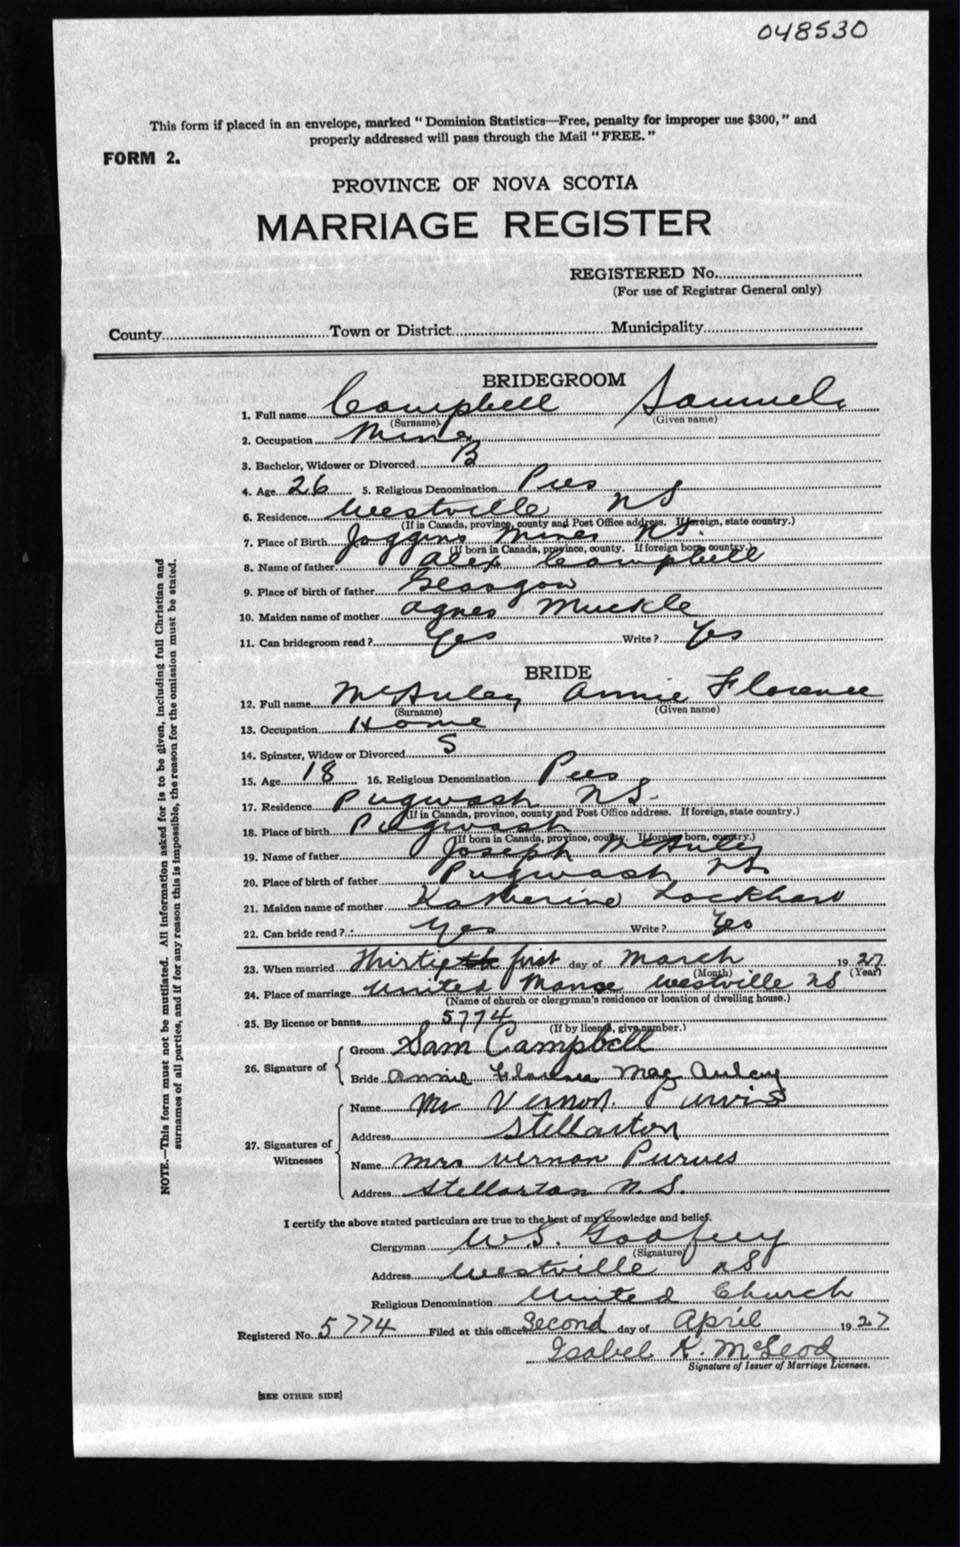 048530
This form if placed in an envelope, marked "Dominion Statistics—Free, penalty for improper use $300," and
properly addressed will pass through the Mail "FREE."
FORM 2.
PROVINCE OF NOVA SCOTIA
MARRIAGE REGISTER
REGISTERED No.
(For use of Registrar General only)
County Town or District Municipality
BRIDEGROOM
1. Full name Campbell Samuel
(Surname) (Given name)
2. Occupation Miner
3. Bachelor, Widower or Divorced B
4. Age 26 5. Religious Denomination Pres
6. Residence Westville NS
(If in Canada, province, county and Post Office address. If foreign, state country.)
7. Place of Birth Joggins Mines NS.
(If born in Canada, province, county. If foreign born, country.)
8. Name of father Alex Campbell
9. Place of birth of father Glasgow
10. Maiden name of mother Agnes Muckle
11. Can bridegroom read? Yes Write? Yes
BRIDE
12. Full name McAuley Annie Florence
(Surname) (Given name)
13. Occupation Home
14. Spinster, Widow or Divorced S
15. Age 18 16. Religious Denomination Pres
17. Residence Pugwash NS.
(If in Canada, province, county and Post Office address. If foreign, state country.)
18. Place of birth Pugwash
(If born in Canada, province, county. If foreign born, country.)
19. Name of father Joseph McAuley
20. Place of birth of father Pugwash NS
21. Maiden name of mother Katherine Lockhart
22. Can bride read? Yes Write? Yes
23. When married Thirtieth first day of March 1927
(Month) (Year)
24. Place of marriage United Manse Westville NS
(Name of church or clergyman's residence or location of dwelling house.)
25. By license or banns 5774
(If by license, give number.)
26. Signature of
Groom Sam Campbell
Bride Annie Florence Mac Auley
27. Signatures of Witnesses
Name Mr Vernon Purvis
Address Stellarton
Name Mrs Vernon Purves
Address Stellarton N.S.
I certify the above stated particulars are true to the best of my knowledge and belief.
Clergyman W.S. Godfrey
(Signature)
Address Westville NS
Religious Denomination United Church
Registered No. 5774 Filed at this office Second day of April 1927
Isabel K. McLeod
Signature of Issuer of Marriage Licenses.
[SEE OTHER SIDE]
NOTE.—This form must not be mutilated. All information asked for is to be given, including full Christian and
surnames of all parties, and if for any reason this is impossible, the reason for the omission must be stated.